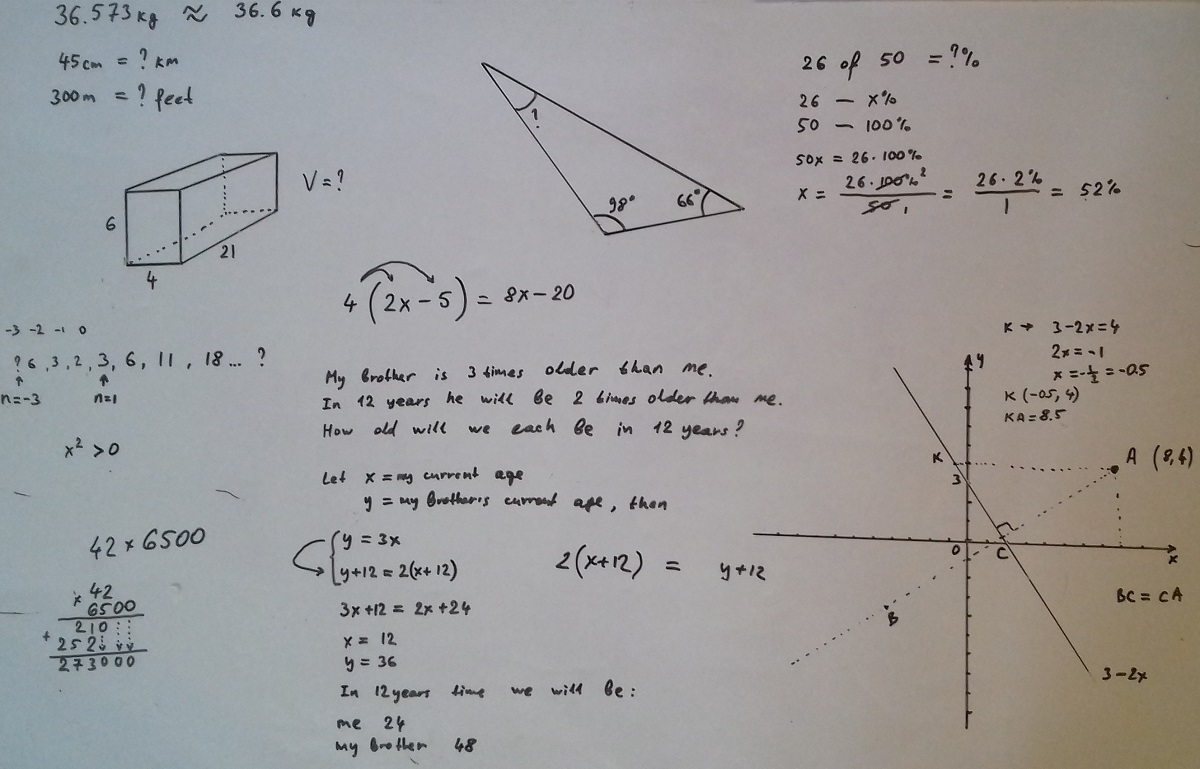 36.573kg ≈ 36.6 kg
45cm = ? km
300m = ? feet
6
4
21
V = ?
1
98°
66°
26 of 50 = ?%
26 — x%
50 — 100%
50x = 26 · 100%
x = 26 · 100% 2 / 50 1 = 26 · 2% / 1 = 52%
4(2x - 5) = 8x - 20
-3 -2 -1 0
? 6, 3, 2, 3, 6, 11, 18 ... ?
n=-3 n=1
x² > 0
42 × 6500
× 42
6500
+ 210
252
273000
My brother is 3 times older than me.
In 12 years he will be 2 times older than me.
How old will we each be in 12 years?
Let x = my current age
y = my brother's current age, then
y = 3x
y+12 = 2(x+12)
2(x+12) = y+12
3x+12 = 2x+24
x = 12
y = 36
In 12 years time we will be:
me 24
my brother 48
K → 3-2x=4
2x = -1
x = -1/2 = -0.5
K (-0.5, 4)
KA = 8.5
y
K
A (8,4)
3
0
C
x
B
BC = CA
3-2x